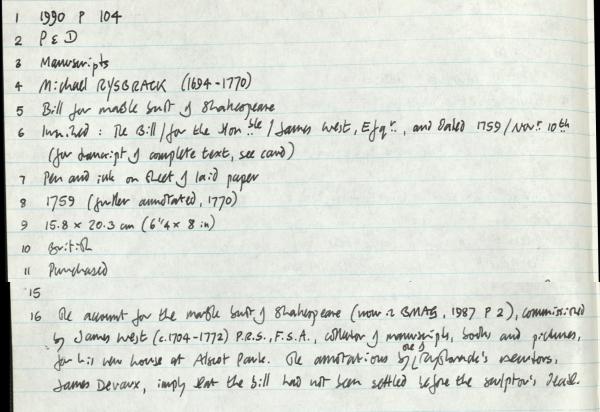 1 1990 P 104
2 P & D
3 Manuscripts
4 Michael RYSBRACK (1694-1770)
5 Bill for marble bust of Shakespeare
6 Inscribed : The Bill / for the Hon ble / James West, Esqr., and dated 1759 / Novr 10th
(for transcript of complete text, see card)
7 Pen and ink on sheet of laid paper
8 1759 (further annotated, 1770)
9 15.8 x 20.3 cm (6 1/4 x 8 in)
10 British
11 Purchased
15
16 The account for the marble bust of Shakespeare (now in BMAG, 1987 P 2), commissioned
by James West (c.1704-1772) P.R.S., F.S.A., collector of manuscripts, books and pictures,
for his new house at Alscot Park. The annotations by one of Rysbrack's executors,
James Devaux, imply that the bill had not been settled before the sculptor's death.